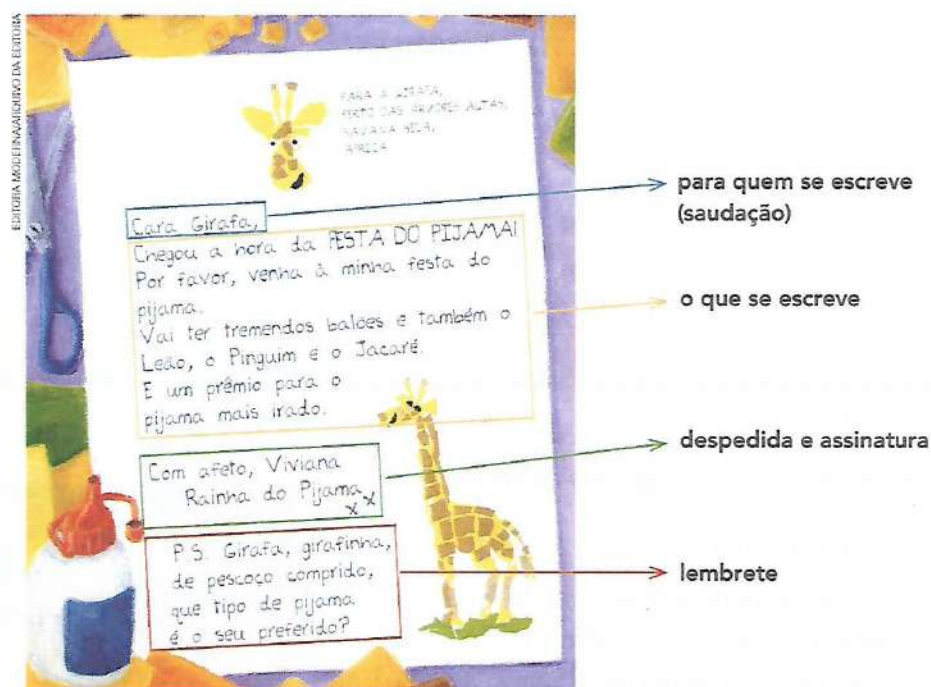 EDITORA MODERNA/ARQUIVO DA EDITORA
PARA A GIRAFA,
PERTO DAS ÁRVORES ALTAS,
SAVANA SECA,
ÁFRICA
Cara Girafa,
Chegou a hora da FESTA DO PIJAMA!
Por favor, venha à minha festa do
pijama.
Vai ter tremendos balões e também o
Leão, o Pinguim e o Jacaré.
E um prêmio para o
pijama mais irado.
Com afeto, Viviana
Rainha do Pijama
x x
P.S. Girafa, girafinha,
de pescoço comprido,
que tipo de pijama
é o seu preferido?
para quem se escreve
(saudação)
o que se escreve
despedida e assinatura
lembrete